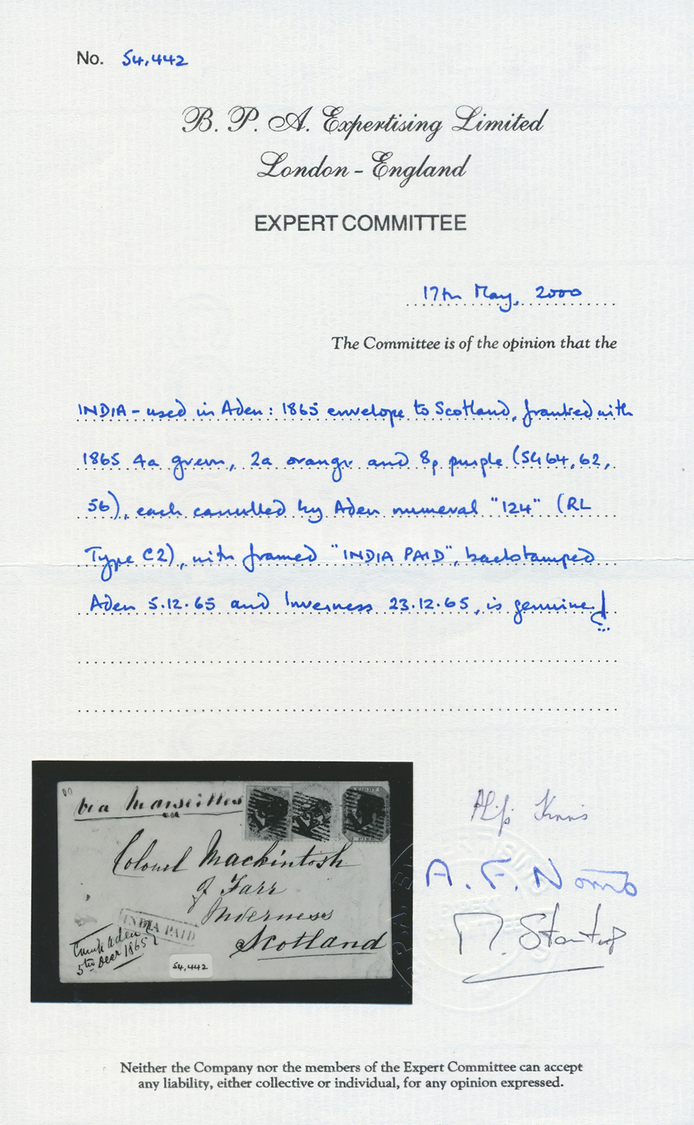 No. 54,442
B. P. A. Expertising Limited
London - England
EXPERT COMMITTEE
17th May, 2000
The Committee is of the opinion that the
INDIA - used in Aden: 1865 envelope to Scotland, franked with
1865 4a green, 2a orange and 8p purple (SG 64, 62,
56), each cancelled by Aden numeral "124" (RL
Type C2), with framed "INDIA PAID", backstamped
Aden 5.12.65 and Inverness 23.12.65, is genuine
via Marseilles
Colonel Mackintosh
of Farr
Inverness
Scotland
INDIA PAID
Aden
5th Decr 1865
54,442
A. F. Norris
Neither the Company nor the members of the Expert Committee can accept
any liability, either collective or individual, for any opinion expressed.